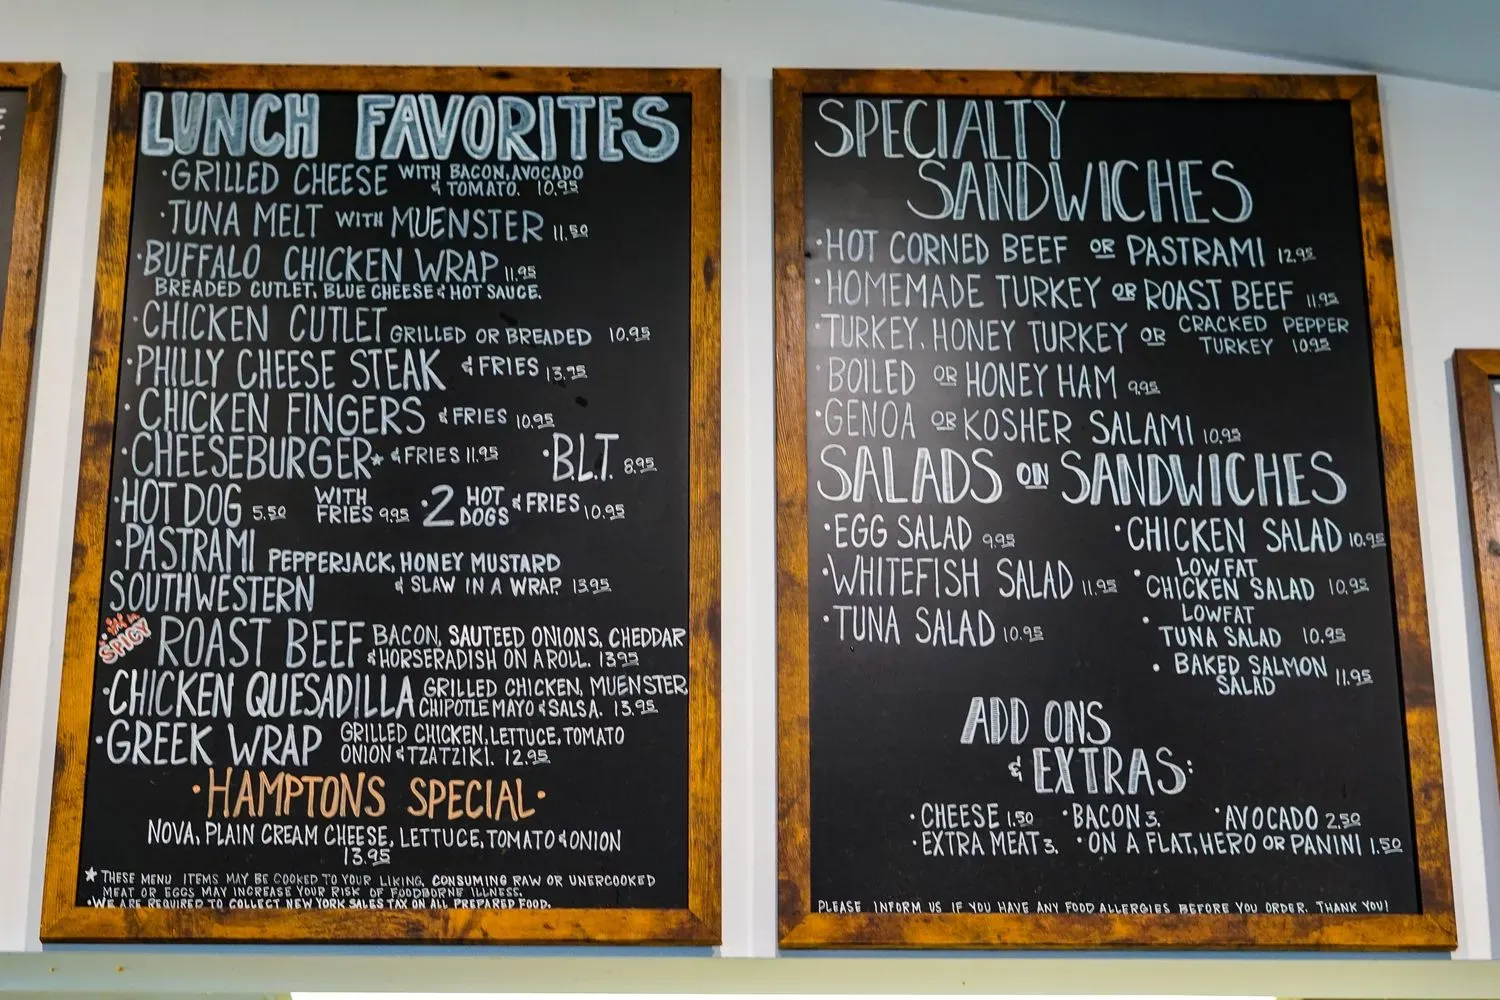 LUNCH FAVORITES
·GRILLED CHEESE WITH BACON, AVOCADO
& TOMATO. 10.95
·TUNA MELT WITH MUENSTER 11.50
·BUFFALO CHICKEN WRAP 11.95
BREADED CUTLET, BLUE CHEESE & HOT SAUCE.
·CHICKEN CUTLET GRILLED OR BREADED 10.95
·PHILLY CHEESE STEAK & FRIES 13.95
·CHICKEN FINGERS & FRIES 10.95
·CHEESEBURGER* & FRIES 11.95 ·B.L.T. 8.95
·HOT DOG 5.50 WITH FRIES 9.95 ·2 HOT DOGS & FRIES 10.95
·PASTRAMI PEPPERJACK, HONEY MUSTARD
SOUTHWESTERN & SLAW IN A WRAP. 13.95
SPICY ROAST BEEF BACON, SAUTEED ONIONS, CHEDDAR
& HORSERADISH ON A ROLL. 13.95
·CHICKEN QUESADILLA GRILLED CHICKEN, MUENSTER,
CHIPOTLE MAYO & SALSA. 13.95
·GREEK WRAP GRILLED CHICKEN, LETTUCE, TOMATO
ONION & TZATZIKI. 12.95
·HAMPTONS SPECIAL·
NOVA, PLAIN CREAM CHEESE, LETTUCE, TOMATO & ONION
13.95
* THESE MENU ITEMS MAY BE COOKED TO YOUR LIKING, CONSUMING RAW OR UNERCOOKED
MEAT OR EGGS MAY INCREASE YOUR RISK OF FOODBORNE ILLNESS.
·WE ARE REQUIRED TO COLLECT NEW YORK SALES TAX ON ALL PREPARED FOOD.
SPECIALTY
SANDWICHES
·HOT CORNED BEEF OR PASTRAMI 12.95
·HOMEMADE TURKEY OR ROAST BEEF 11.95
·TURKEY, HONEY TURKEY OR CRACKED PEPPER
TURKEY 10.95
·BOILED OR HONEY HAM 9.95
·GENOA OR KOSHER SALAMI 10.95
SALADS ON SANDWICHES
·EGG SALAD 9.95
·WHITEFISH SALAD 11.95
·TUNA SALAD 10.95
·CHICKEN SALAD 10.95
·LOWFAT
CHICKEN SALAD 10.95
·LOWFAT
TUNA SALAD 10.95
·BAKED SALMON
SALAD 11.95
ADD ONS
& EXTRAS:
·CHEESE 1.50 ·BACON 3. ·AVOCADO 2.50
·EXTRA MEAT 3. ·ON A FLAT, HERO OR PANINI 1.50
PLEASE INFORM US IF YOU HAVE ANY FOOD ALLERGIES BEFORE YOU ORDER. THANK YOU!